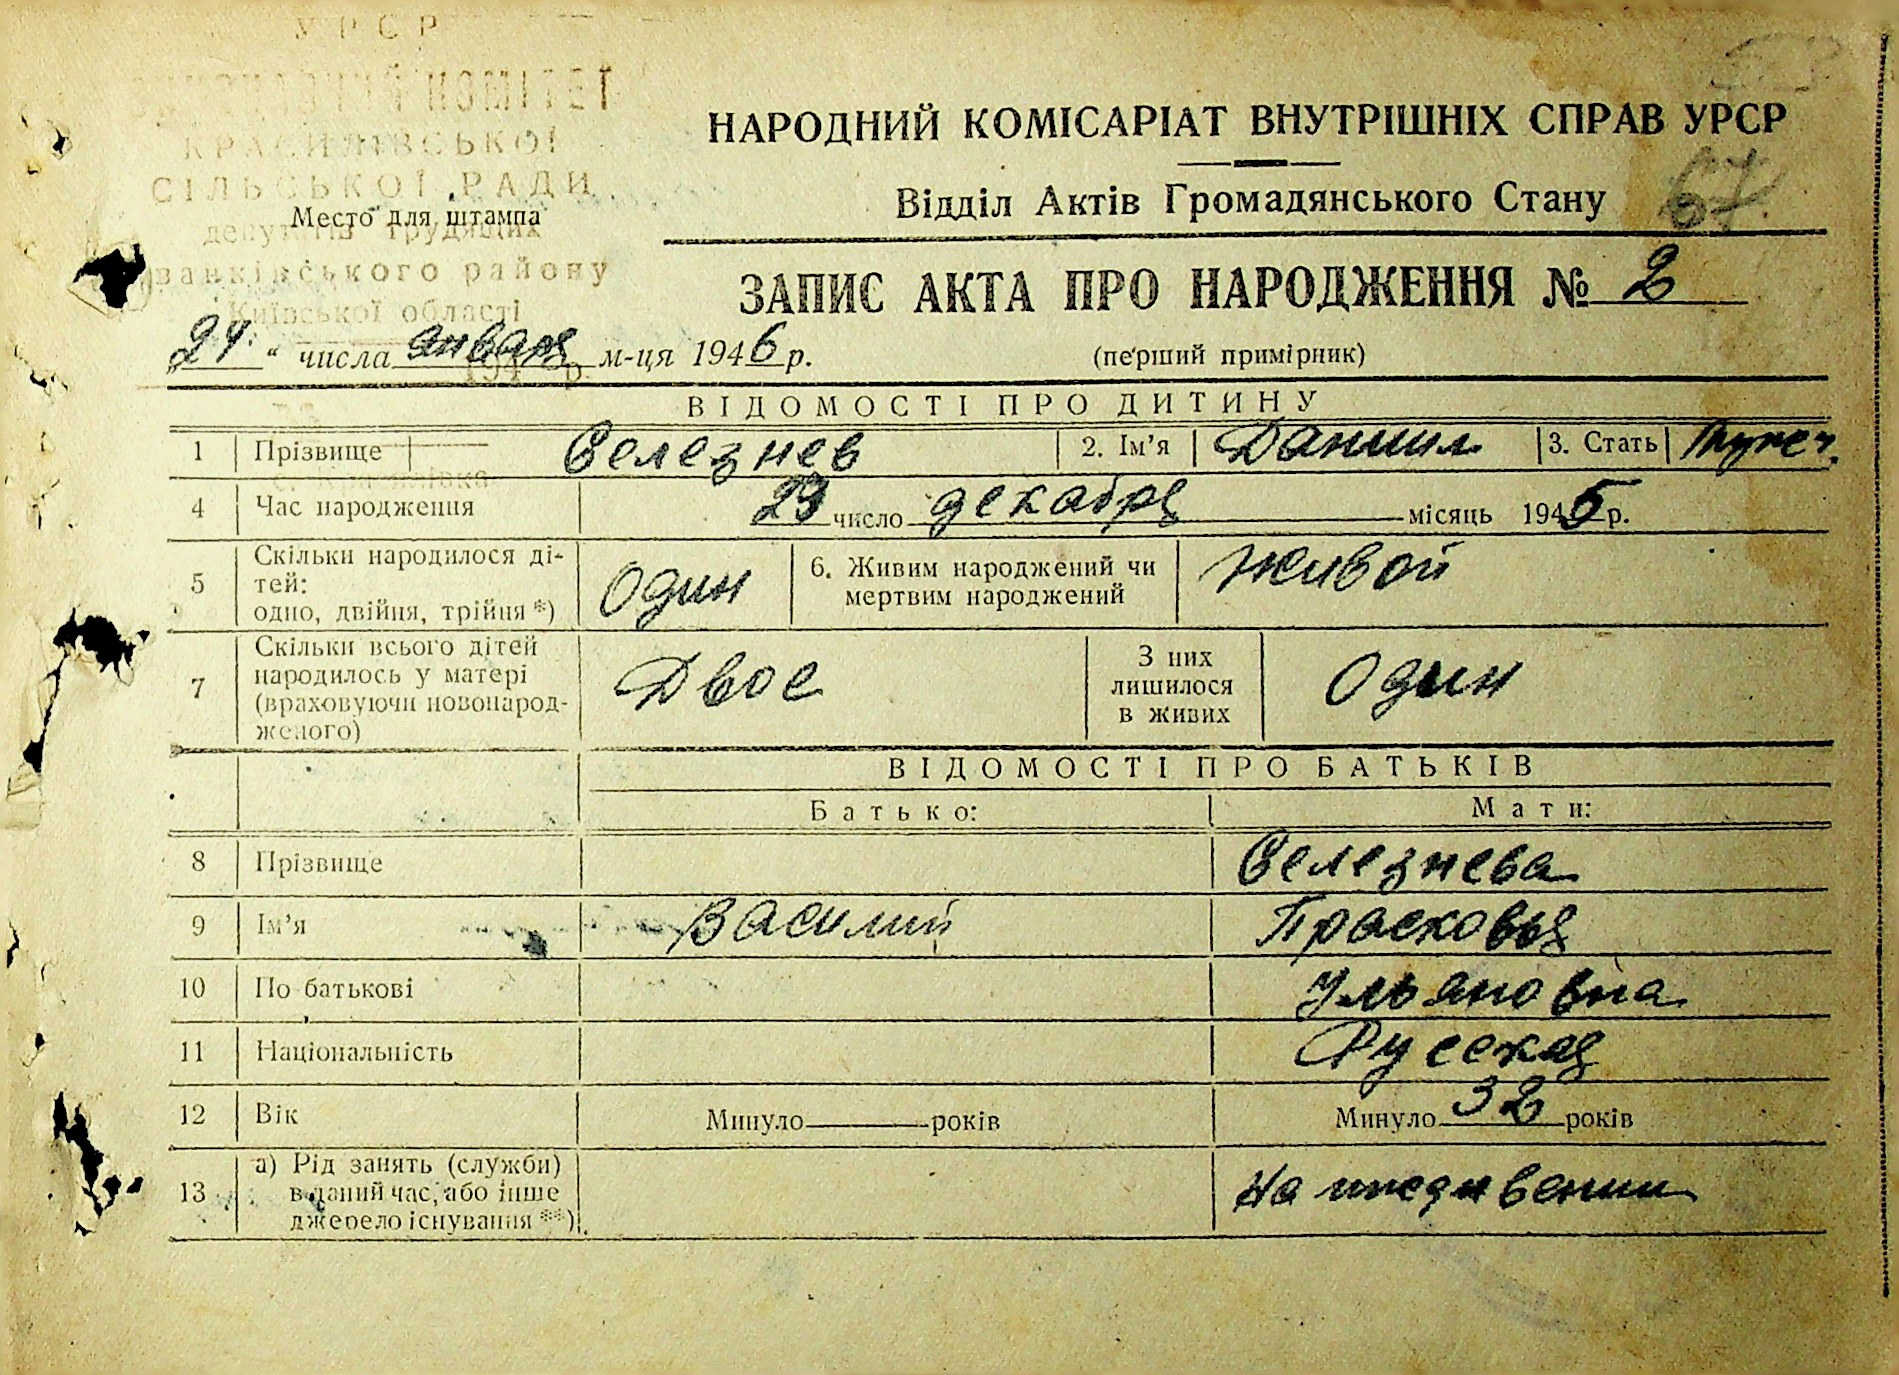 УРСР
ВИКОНАВЧИЙ КОМІТЕТ
КРАСИЛІВСЬКОЇ
СІЛЬСЬКОЇ РАДИ
Место для штампа
депутатів трудящих
Іванківського району
Київської області
194 р.
НАРОДНИЙ КОМІСАРІАТ ВНУТРІШНІХ СПРАВ УРСР
67
Відділ Актів Громадянського Стану
ЗАПИС АКТА ПРО НАРОДЖЕННЯ № 2
„24“ числа января м-ця 1946 р.
(перший примірник)
ВІДОМОСТІ ПРО ДИТИНУ
1 Прізвище Селезнев 2. Ім’я Даниил 3. Стать Мужеч.
4 Час народження 23 число декабря місяць 1945 р.
5 Скільки народилося ді-
тей:
одно, двійня, трійня *)
Один
6. Живим народжений чи
мертвим народжений
Живой
7 Скільки всього дітей
народилось у матері
(враховуючи новонарод-
женого)
Двое
З них
лишилося
в живих
Один
ВІДОМОСТІ ПРО БАТЬКІВ
Батько: Мати:
8 Прізвище Селезнева
9 Ім’я Василий Прасковья
10 По батькові Ульяновна
11 Національність Русская
12 Вік Минуло років Минуло 32 років
13 а) Рід занять (служби)
в даний час, або інше
джерело існування **)
На иждивении